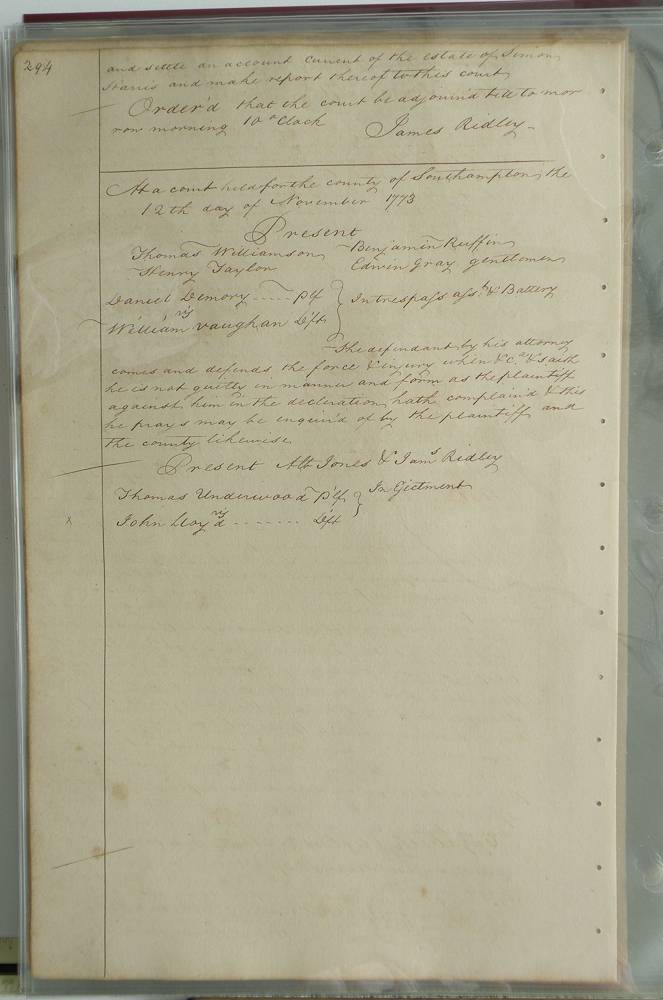 294
and settle an account Current of the estate of Simon
Staris and make report thereof to this court
Order'd that the court be adjourn'd till to mor
row morning 10 oClock James Ridley
At a court held for the county of Southampton the
12th day of November 1773
Present
Thomas Williamson Benjamin Ruffin
Henry Taylor Edwin Gray gentlemen
Daniel Demory ..... Plf } In trespass asst. & Battery
vs
William Vaughan Deft
The defendant by his attorney
comes and defends the force & injury when &Ca. & saith
he is not guilty in manner and form as the plaintiff
against him in the declaration hath complain'd & this
he prays may be enquir'd of by the plaintiff and
the county likewise
Present Alb Jones & Jams Ridley
Thomas Underwood Plf } In Ejectment
vs
x John Lloyd ........ Deft